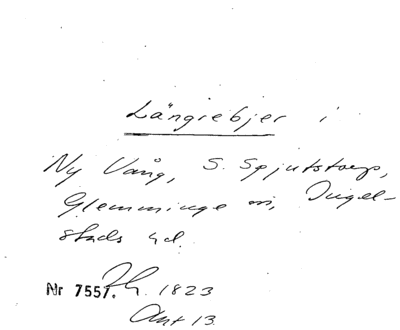 Längrebjer i
Ny Vång, S. Spjutstorp,
Glemminge sn, Ingel-
stads hd.
Nr 7557. 1823
Akt 13